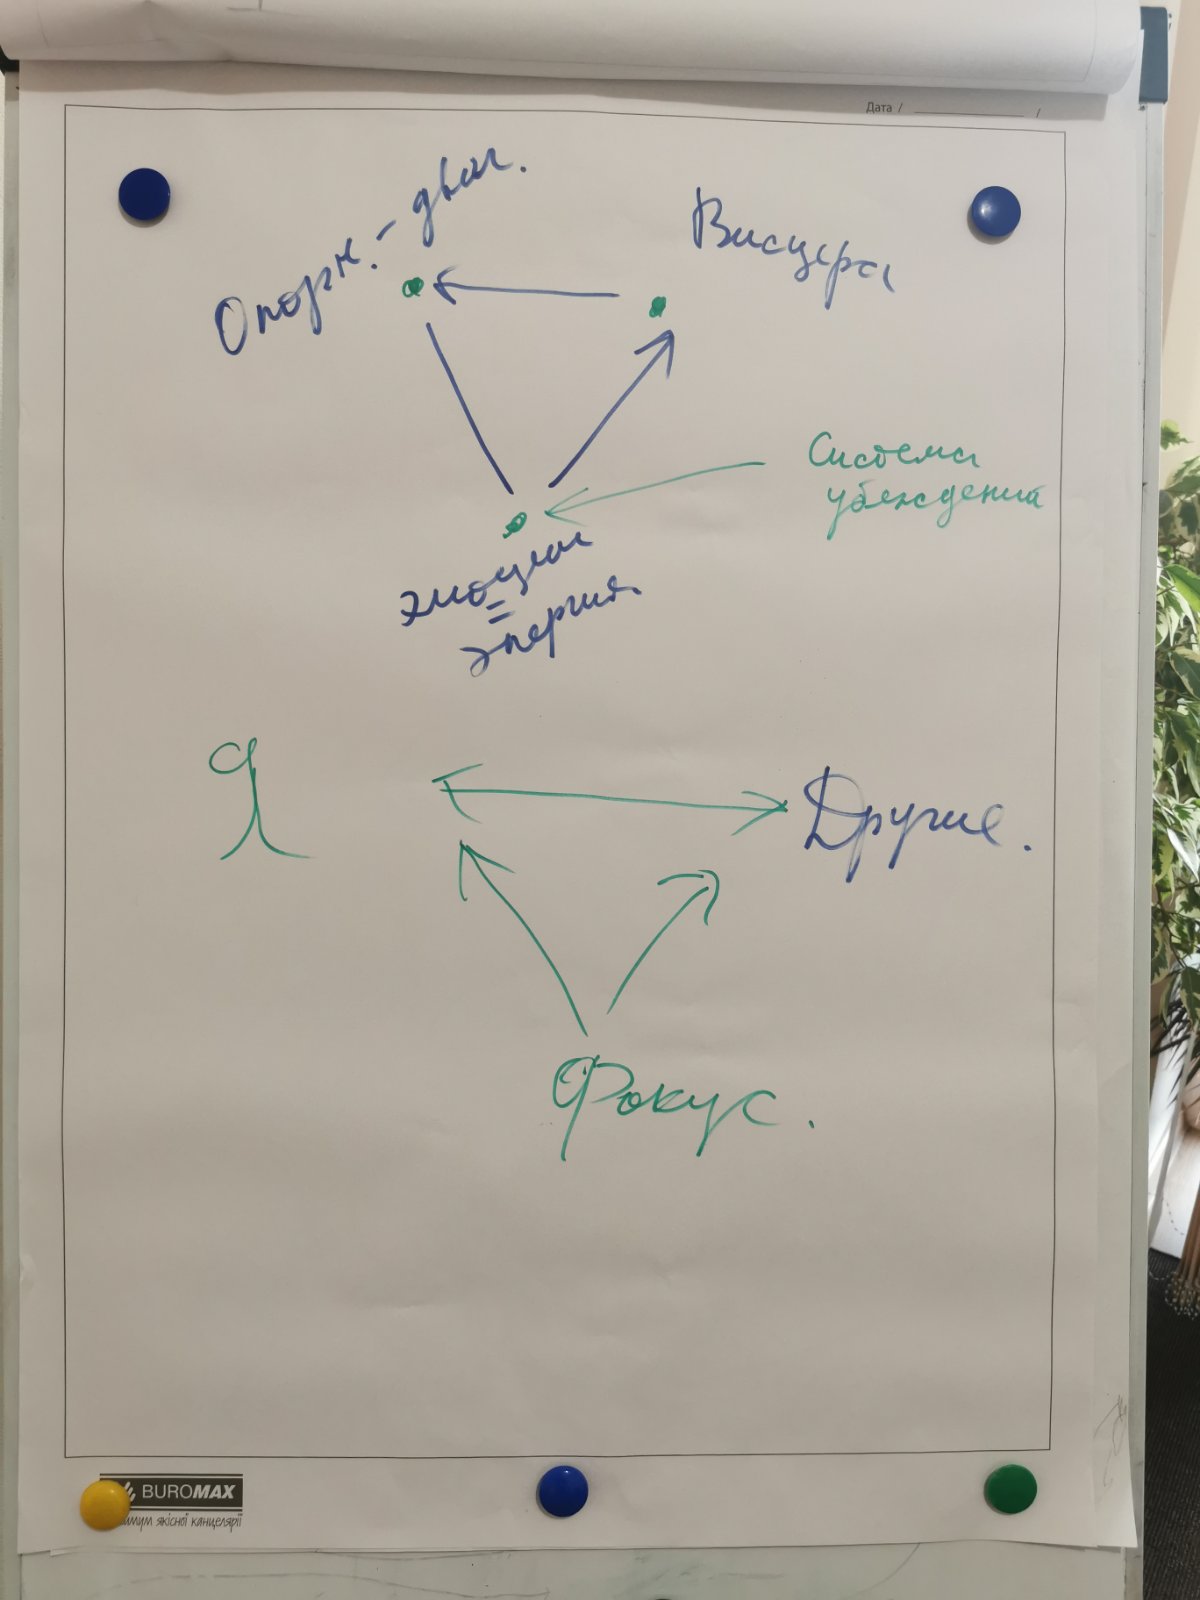 Дата / /
Опорн.-двиг.
Висцера
Система
убеждений
эмоции
=
энергия
Я
Другие.
Фокус.
BUROMAX
якісної канцелярії